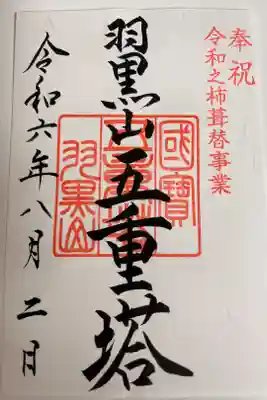 奉祝
令和之杮葺替事業
國寶
羽黒山五重塔
羽黒山
令和六年八月二日